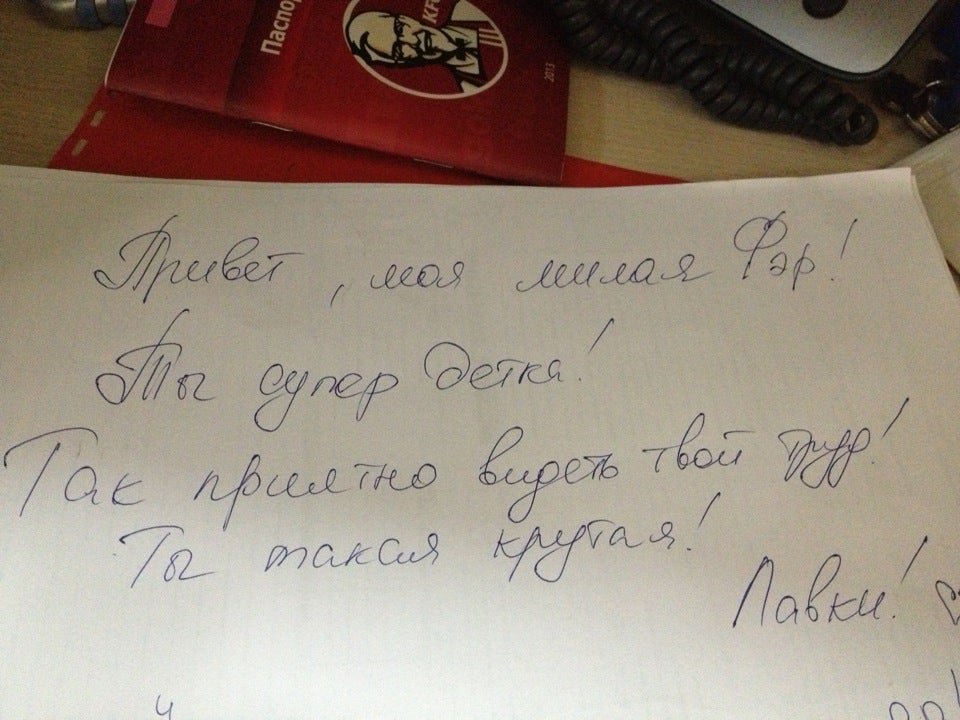 Паспор
KFC
2013
Привет, моя милая Фэр!
Ты супер детка!
Так приятно видеть твой труд!
Ты такая крутая!
Лавки!